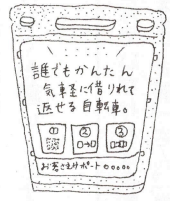 誰でもかんたん
気軽に借りれて
返せる自転車。
① ② ③
お客さまサポート